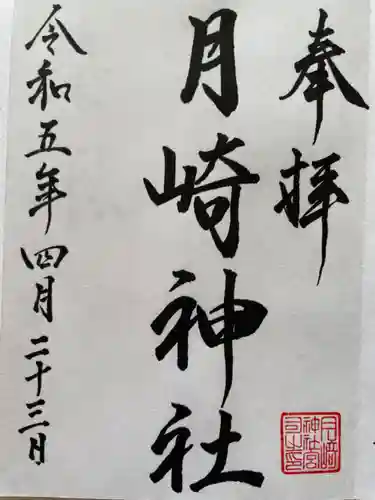 奉拝
月崎神社
令和五年四月二十三日
月崎
神社宮
司之印